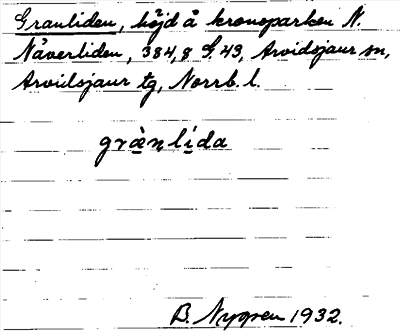 Granliden, höjd å kronoparken N.
Nåverliden, 384,8 G. 43, Arvidsjaur sn,
Arvidsjaur tg, Norrb. l.
grànlída
B. Nygren 1932.